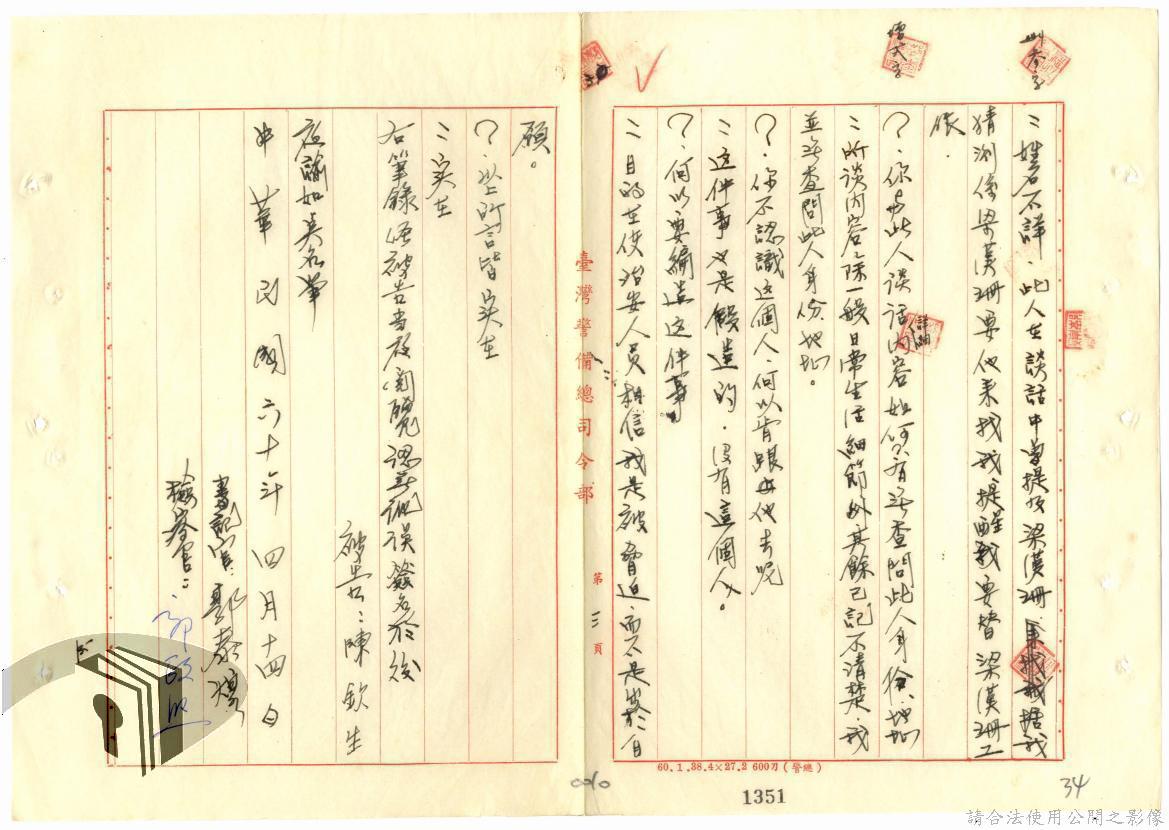 刪叁字
增弍字
：姓名不詳，此人在談話中曾提及梁漢珊，据我
猜測係梁漢珊要他來找我提醒我要替梁漢珊工
作．
？．你与此人談話內容如何？有無查問此人身份、地址
詳細
：所談內容除一般日常生活細節外其餘已記不清楚，我
並無查問此人身份、地址。
？．你不認識这個人，何以肯跟他去呢
：这件事也是假造的，沒有這個人。
？．何以要編造这件事
：目的在使治安人員相信我是被脅迫，而不是出於自
願。
？．以上所言皆实在
：实在
右筆錄經被告當庭閱覽認無訛误簽名於後
被告：陳欽生
庭諭如矣名筆
中華民國六十年四月十四日
書記官：郭
檢察官：
臺灣警備總司令部
第三頁
60.1.38.4×27.2 600刀(警總)
1351
34
請合法使用公開之影像